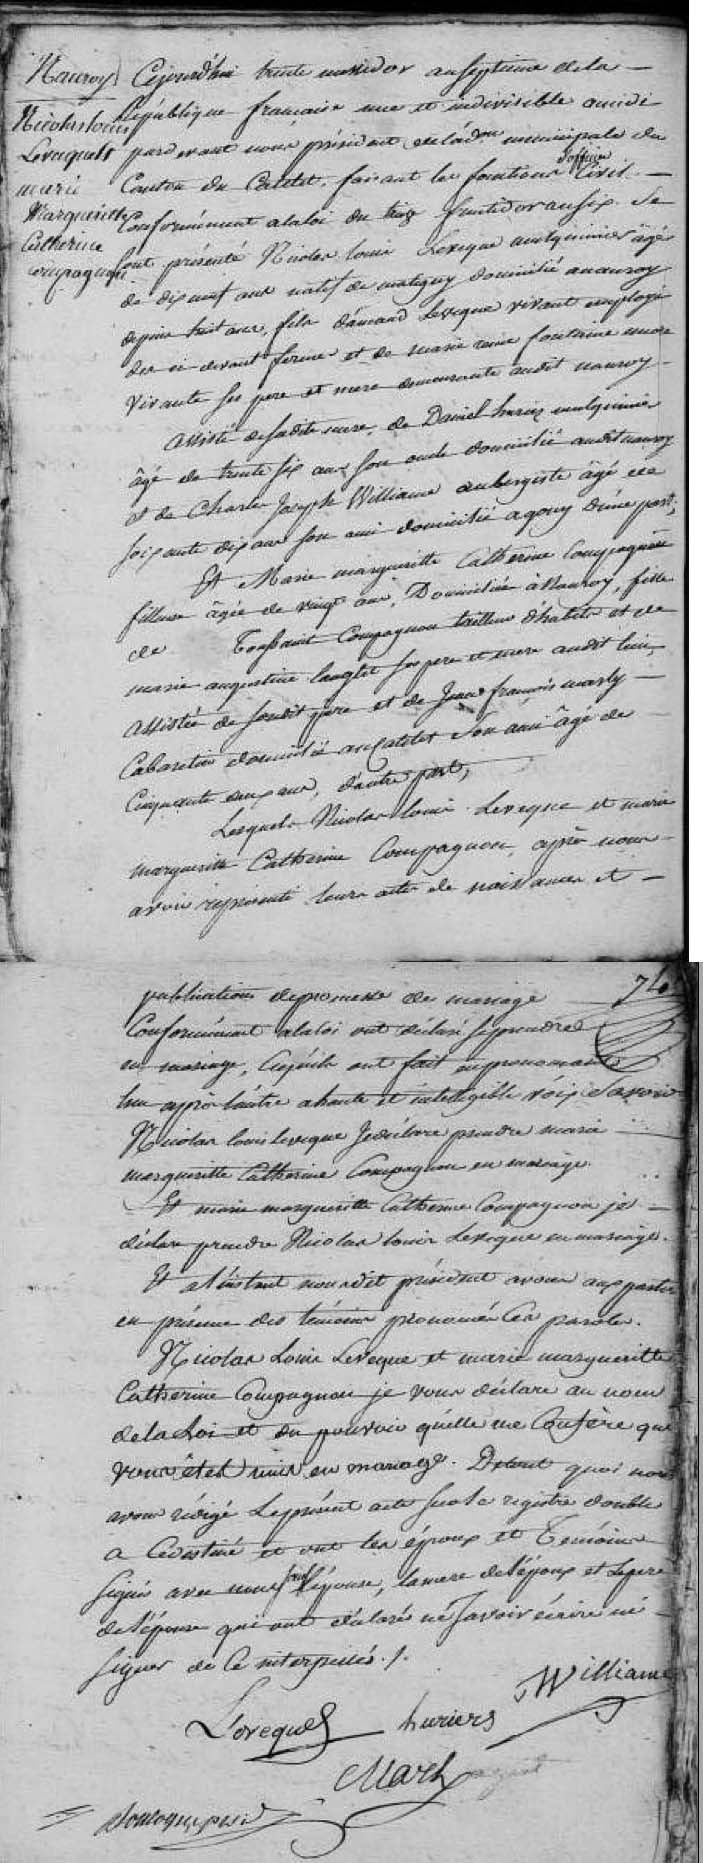 Nauroy
Nicolas louis
Levequet
marie
Margueritte
Catherine
Compagnon
Cejourd'hui trente messidor an septieme de la
République francaise une et indivisible a midi
pardevant nous président de l'adon municipale du
Canton du Catelet, faisant les fonctions d'officier Civil.
Conformément a la loi du treize fructidor an six. Se
sont présenté Nicolas louis Leveque mulquinier âgé
de dix neuf ans natif de matigny domicilié a nauroy
depuis huit ans, fils d'amand Leveque vivant employé
des ci devant ferme et de marie fontaine encore
vivante ses pere et mere demeurante audit nauroy
Assisté de sadite mere, de Daniel huriez mulquinier
âgé de trente six ans son oncle domicilié audit nauroy
et de Charles Joseph Williame aubergiste âgé de
soixante dix ans son ami domicilié a gouy d'une part,
Et Marie margueritte Catherine Compagnon
fileuse âgée de vingt ans, Domiciliée à Nauroy, fille
de Toussaint Compagnon tailleur d'habits et de
marie augustine langlet ses pere et mere audit lieu,
Assistée de sondit père et de Jean françois marly
Cabaretier domicilié au Catelet son ami âgé de
Cinquante deux ans, d'autre part,
Lesquels Nicolas louis Leveque et marie
margueritte Catherine Compagnon, après nous
avoir représenté leurs actes de naissances et
74
publications de promesse de mariage
Conformément a la loi ont déclaré se prendre
en mariage, Ce qu'ils ont fait en prononcant
l'un après l'autre a haute et intelligible voix Savoir
Nicolas louis leveque Je déclare prendre marie
margueritte Catherine Compagnon en mariage.
Et marie margueritte Catherine Compagnon je
déclare prendre Nicolas louis Leveque en mariage.
Et a l'instant nousdit président avons aux parties
en présence des témoins prononcé Ces paroles.
Nicolas Louis Leveque et marie margueritte
Catherine Compagnon je vous déclare au nom
de la Loi et du pouvoir qu'elle me Confère que
vous êtes unis en mariage. De tout quoi nous
avons rédigé Le présent acte sur le registre double
a Ce destiné et ont les époux et Temoins
Signé avec nous sauf l'épouse, la mere de l'époux et Le pere
de l'épouse qui ont déclaré ne Savoir écrire né
Signer de Ce interpellés ./.
Leveque huriers Williame
Marly